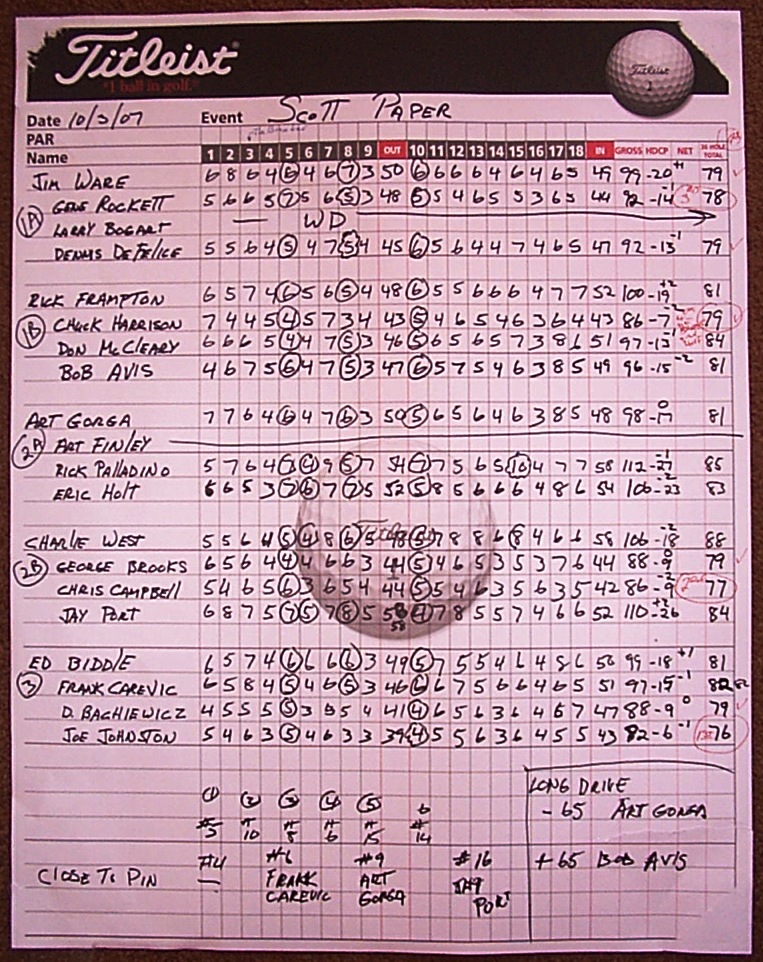 Titleist®
"1 ball in golf."
Titleist
1
Date 10/3/07 Event SCOTT PAPER
PAR
Name 1 2 3 4 5 6 7 8 9 OUT 10 11 12 13 14 15 16 17 18 IN GROSS HDCP NET 18 HOLE TOTAL
JIM WARE 6 8 6 4 6 4 6 7 3 50 6 6 6 6 4 6 4 6 5 49 99 -20 +1 79
1A GENE ROCKETT 5 6 6 5 7 5 6 5 3 48 5 5 4 6 5 5 3 6 5 44 92 -14 3rd 78
LARRY BOGART — WD
DENNIS DEFELICE 5 5 6 4 5 4 7 5 4 45 6 5 6 4 4 7 4 6 5 47 92 -13 -1 79
RICK FRAMPTON 6 5 7 4 6 5 6 5 4 48 6 5 5 6 6 6 4 7 7 52 100 -19 +2 81
1B CHUCK HARRISON 7 4 4 5 4 5 7 3 4 43 5 4 6 5 4 6 3 6 4 43 86 -7 -2 79
DON MCCLEARY 6 6 6 5 4 4 7 5 3 46 5 6 5 6 5 7 3 8 6 51 97 -13 84
BOB AVIS 4 6 7 5 6 4 7 5 3 47 6 5 7 5 4 6 3 8 5 49 96 -15 -2 81
ART GORGA 7 7 6 4 6 4 7 6 3 50 5 6 5 6 4 6 3 8 5 48 98 -17 0 81
2A ART FINLEY
RICK PALLADINO 5 7 6 4 7 4 9 5 7 54 7 7 5 6 5 10 4 7 7 58 112 -27 -1 85
ERIC HOLT 6 6 5 3 7 6 7 7 5 52 5 8 5 6 6 6 4 8 6 54 106 -23 83
CHARLIE WEST 5 5 6 4 5 4 8 6 5 48 5 7 8 8 6 8 4 6 6 58 106 -18 -2 88
2B GEORGE BROOKS 6 5 6 4 4 4 6 6 3 44 5 4 6 5 3 5 3 7 6 44 88 -9 0 79
CHRIS CAMPBELL 5 4 6 5 6 3 6 5 4 44 5 5 4 6 3 5 6 3 5 42 86 -9 -2 2nd 77
JAY PORT 6 8 7 5 7 5 7 8 5 58 4 7 8 5 5 7 4 6 6 52 110 -26 +2 84
58
ED BIDDLE 6 5 7 4 6 6 6 6 3 49 5 7 5 5 4 6 4 8 6 50 99 -18 +1 81
3 FRANK CAREVIC 6 5 8 4 5 4 6 5 3 46 6 6 7 5 6 6 4 6 5 51 97 -15 -1 82 82
D. BACHIEWICZ 4 5 5 5 5 3 5 5 4 41 4 6 5 6 3 6 4 6 7 47 88 -9 0 79
JOE JOHNSTON 5 4 6 3 5 4 6 3 3 39 4 5 5 6 3 6 4 5 5 43 82 -6 -1 1st 76
LONG DRIVE
1 2 3 4 5 6
-65 ART GORGA
#5 #10 #8 #6 #15 #14
#4 #6 #9 #16
+65 BOB AVIS
CLOSE TO PIN — FRANK CAREVIC ART GORGA JAY PORT